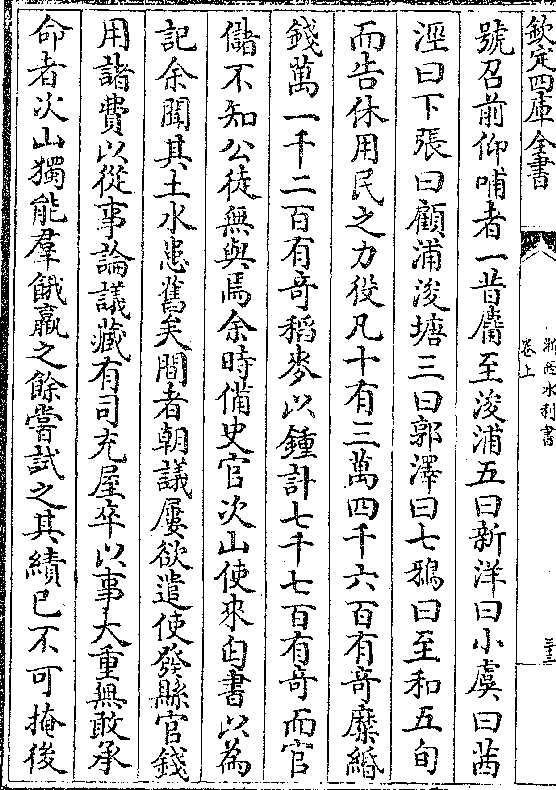 欽定四庫全書
浙西水利書
卷上
三十三
號召前仰哺者一昔麕至浚浦五曰新洋曰小虞曰茜
涇曰下張曰顧浦浚塘三曰郭澤曰七鴉曰至和五旬
而告休用民之力役凡十有三萬四千六百有奇糜緡
錢萬一千二百有奇稻麥以鍾計七千七百有奇而官
儲不知公徒無與焉余時備史官次山使來白書以為
記余聞其土水患舊矣間者朝議屢欲遣使發縣官錢
用諸費以從事論議藏有司充屋卒以事大重無敢承
命者次山獨能羣餓羸之餘嘗試之其績已不可掩後